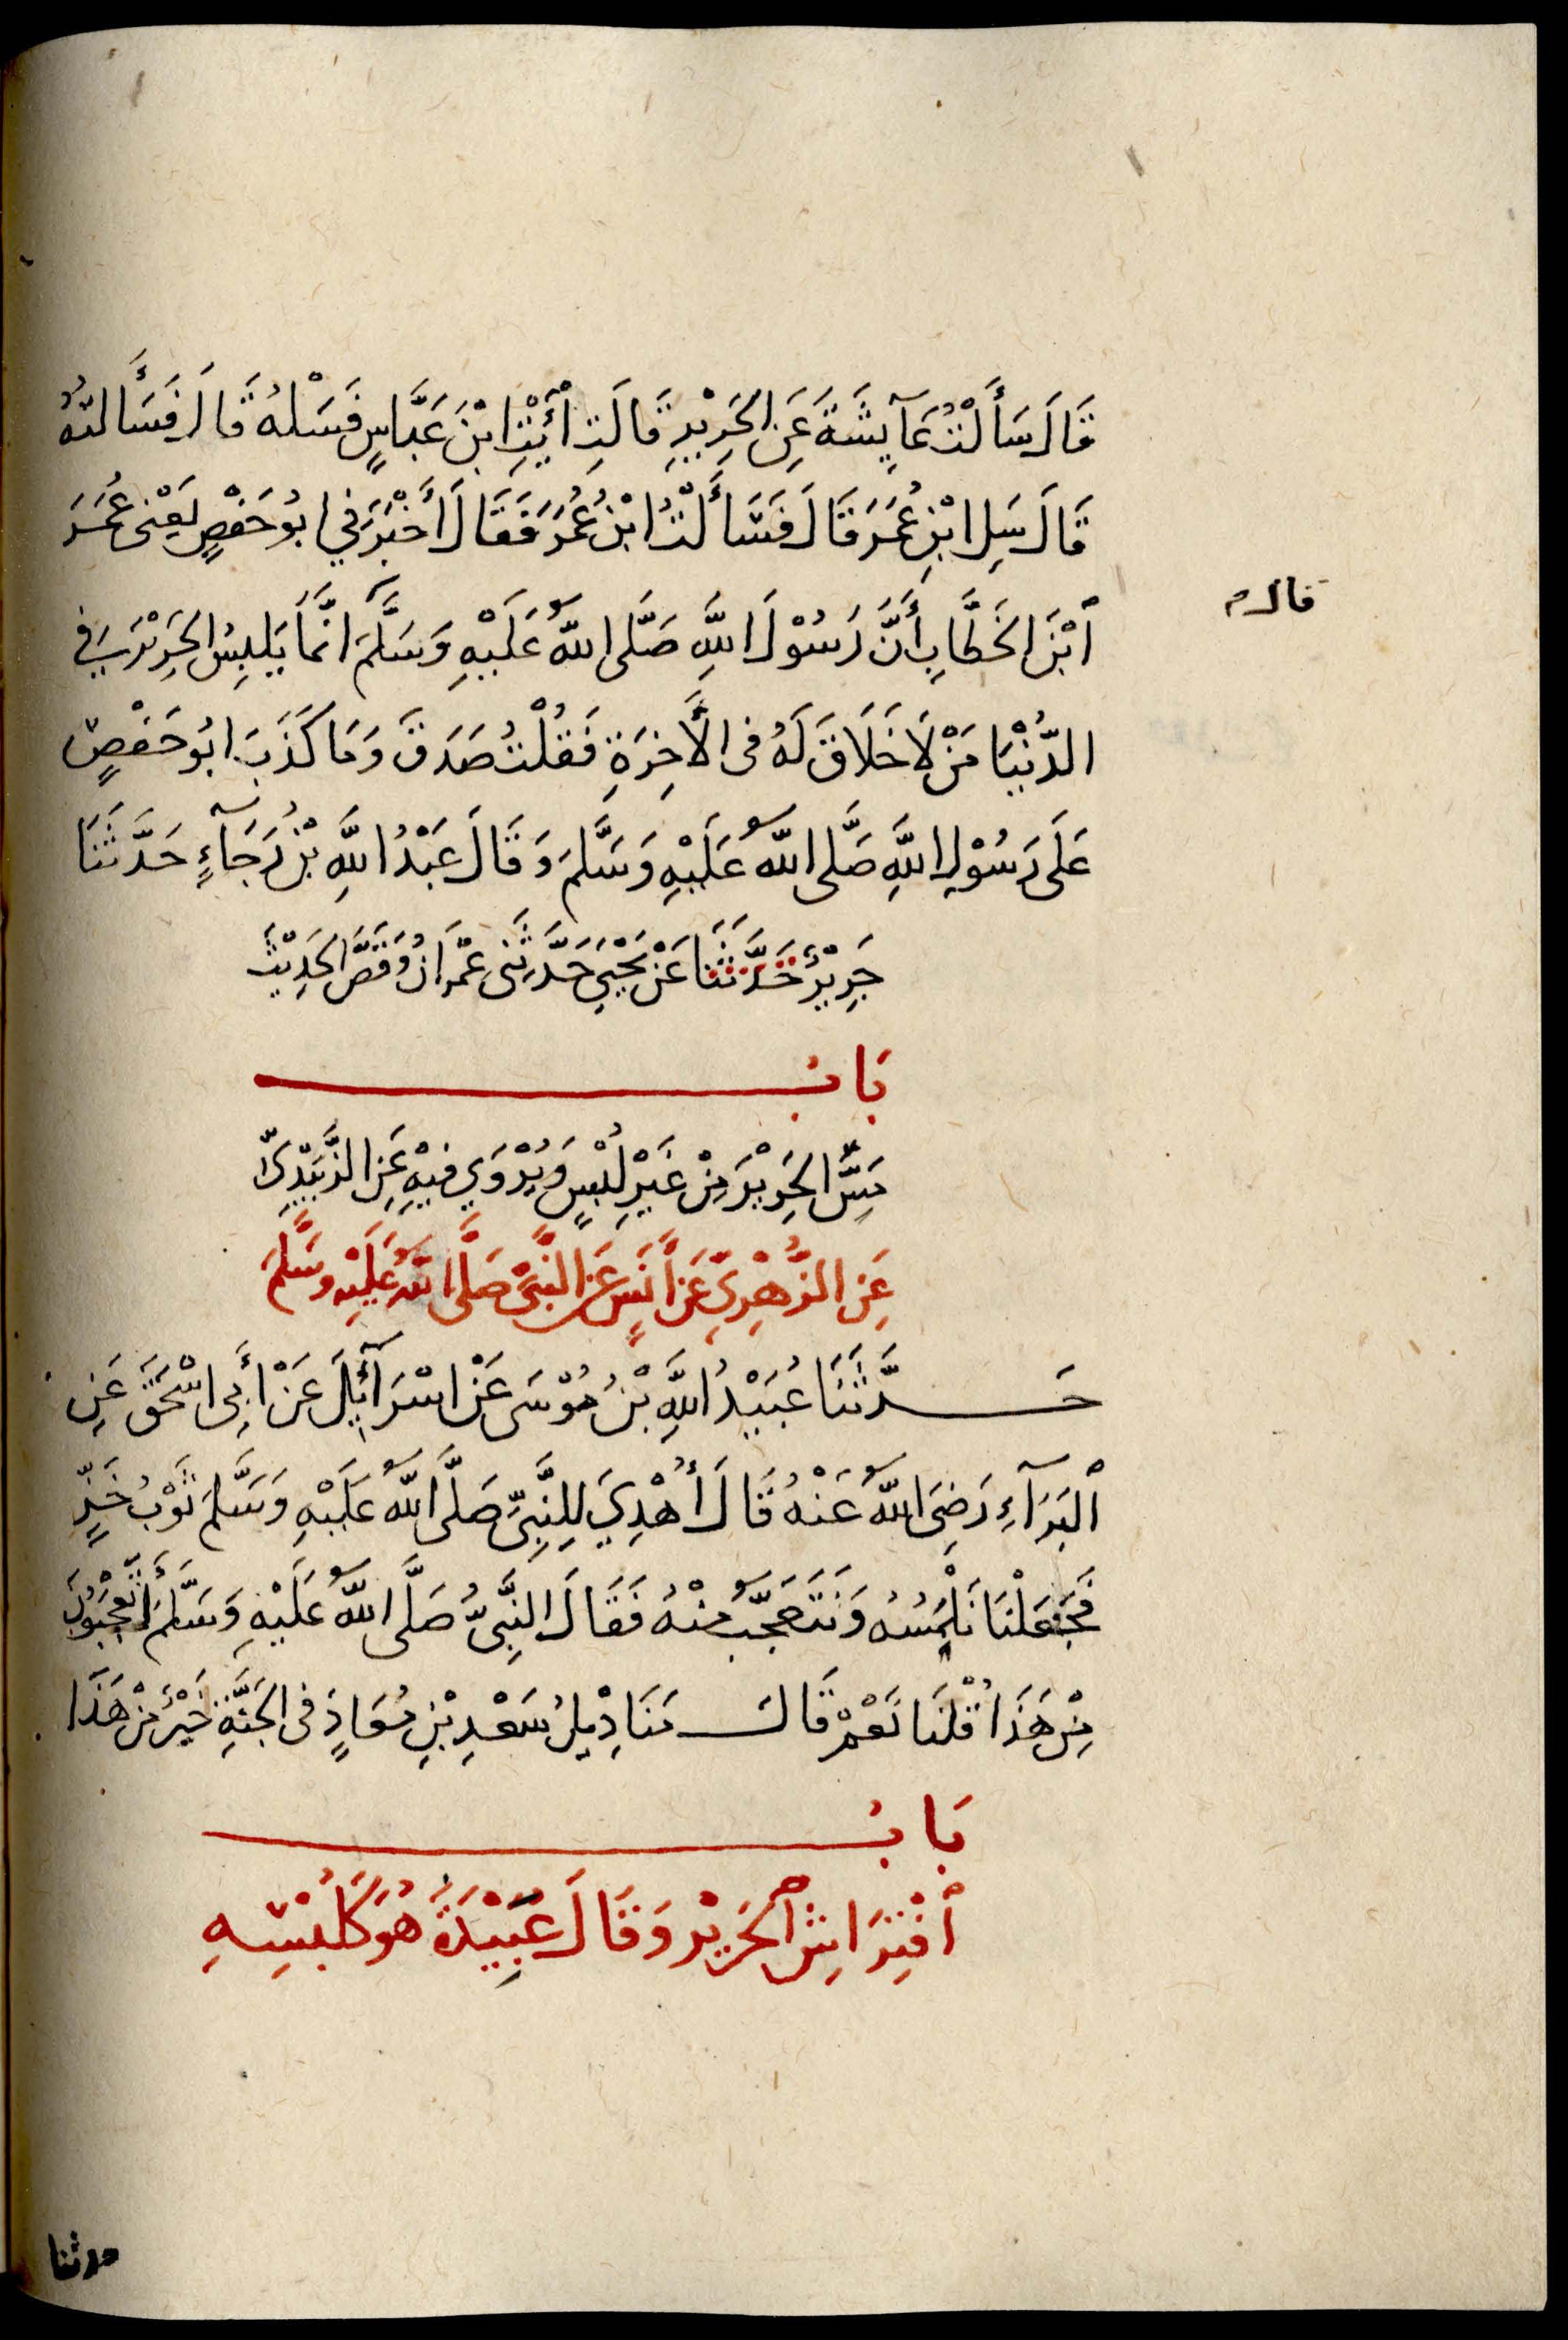 قَالَ سَأَلْتُ عَآيِشَةَ عَنِ الحَرِيْرِ قَالَتِ اُئْتِ ابْنَ عَبَّاسٍ فَسَلْهُ قَالَ فَسَأَلتُهُ
قَالَ سَلِ ابْنَ عُمَرَ قَالَ فَسَأَلْتُ ابْنَ عُمَرَ فَقَالَ أَخْبَرَنِي ابُو حَفْصٍ يَعْنِى عُمَرَ
ابْنَ الخَطَّابِ أَنَّ رَسُوْلَ اللَّهِ صَلَّى اللَّهُ عَلَيْهِ وَسَلَّمَ انَّمَا يَلبِسُ الحَرِيْرَ فِي
قال
الدُّنْيَا مَنْ لَا خَلَاقَ لَهُ فى الأَخِرَةِ فَقُلْتُ صَدَقَ وَمَا كَذَبَ ابُو حَفْصٍ
عَلَى رَسُوْلِ اللَّهِ صَلَّى اللَّهُ عَلَيْهِ وَسَلَّمَ وَقَالَ عَبْدُ اللَّهِ بْنُ رَجَآءٍ حَدَّثَنَا
جَرِيْرٌ حَدَّثَنَا عَنْ يَحْيَى حَدَّثَنِى عِمْرَانُ وَقَصَّ الحَدِيْثَ
بَابُ
مَسِّ الحَرِيْرَ مِنْ غَيْرِ لُبْسٍ وَيُرْوَي فِيْهِ عَنِ الزُّبَيْدِىِّ
عَنِ الزُّهْرِيِّ عَنْ أَنَسٍ عَنِ النَّبِىِّ صَلَّى اللَّهُ عَلَيْهِ وسَلَّمَ
حَدَّثَنَا عُبَيْدُ اللَّهِ بْنُ مُوْسَى عَنْ اسْرَآئِيلَ عَنْ أَبِى اسْحَقَ عَنِ
البَرَآءِ رَضِىَ اللَّهُ عَنْهُ قَالَ أُهْدِيَ لِلنَّبِىِّ صَلَّى اللَّهُ عَلَيْهِ وَسَلَّمَ ثَوْبُ خَزٍّ
فَجَعَلْنَا نَلْمَسُهُ وَنَتَعَجَّبُ مِنْهُ فَقَالَ النَّبِىُّ صَلَّى اللَّهُ عَلَيْهِ وَسَلَّمَ أَتَعْجَبُونَ
مِنْ هَذَا قُلْنَا نَعَمْ قَالَ مَنَادِيْلُ سَعْدِ بْنِ مُعَاذٍ فى الجَنَّةِ خَيْرٌ مِنْ هَذَا
بَابُ
افْتِرَاشِ الْحَرِيْرِ وَقَالَ عَبِيْدَةُ هُوَ كَلُبْسِهِ
حدثنا